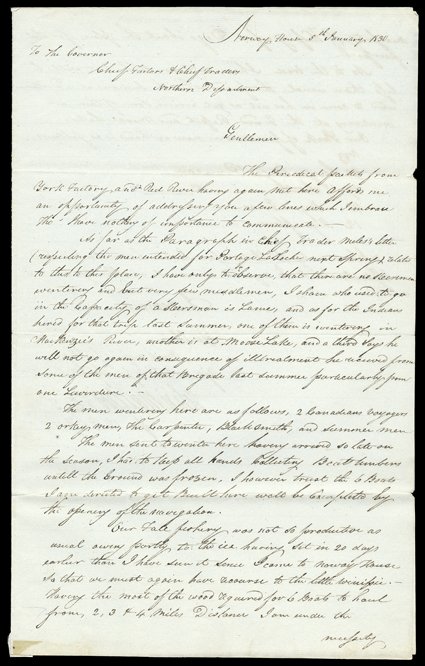 Norway House 5th January 1830
To The Governor
Chief Factors & Chief Traders
Northern Department
Gentlemen
The Periodical packets from
York Factory and Red River having again met here affords me
an opportunity of addressing you a few lines which I embrace
Tho' I have nothing of importance to communicate. -
As far as the Paragraph in Chief Trader Miles's letter
respecting the men intended for Portage Laloche next Spring relates
to this place, I have only to observe, that there are no Steersmen
wintering and but very few middlemen, I share who used to go
in the Capacity of a Steersman is Lame, and as for the Indians
hired for that trip last Summer, one of them is wintering in
MacKenzie's River, another is at Moose Lake, and a third says he
will not go again in consequence of illtreatment he received from
Some of the men of that Brigade last summer particularly from
one Laverdure. -
The men wintering here are as follows, 2 Canadians voyagers
2 orkney men, The Carpenter, Black smith, and summer men
The men sent to winter here having arrived so late in
the Season, I had to keep all hands Collecting Boat timbers
untill the Ground was frozen, I however trust the 6 Boats
I am directed to get Built here will be Compleated by
the opening of the navigation.
Our Fall fishery was not so productive as
usual owing partly to the ice having Set in 20 days
earlier than I have seen it sence I came to norway House
So that we must again have recourse to the little winipic. -
Having the most of the wood required for 6 Boats to haul
from, 2, 3 & 4 Miles Distance I am under the
necessity